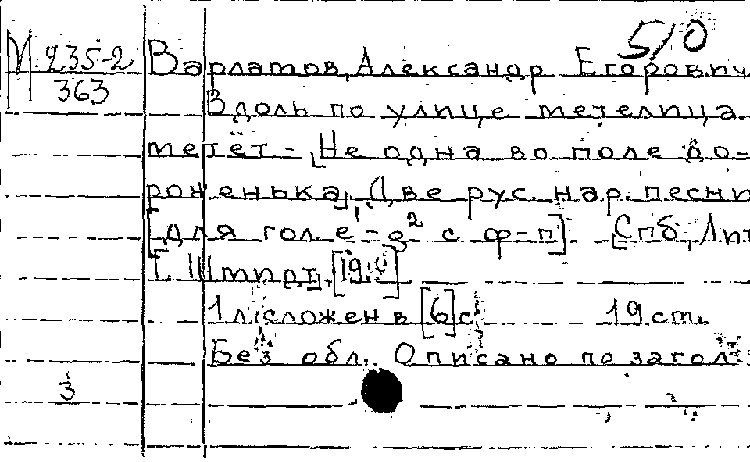 5/0
М 235-2 Варламов, Александр Егорович
363
Вдоль по улице метелица
метёт - [Не одна во поле до-
роженька]. Две рус. нар. песни
[для гол. e-g² с ф-п] [Спб, Лит.
Т.
1 л. сложен в [6] с. 19 ст.
Без обл. Описано по загол.
3